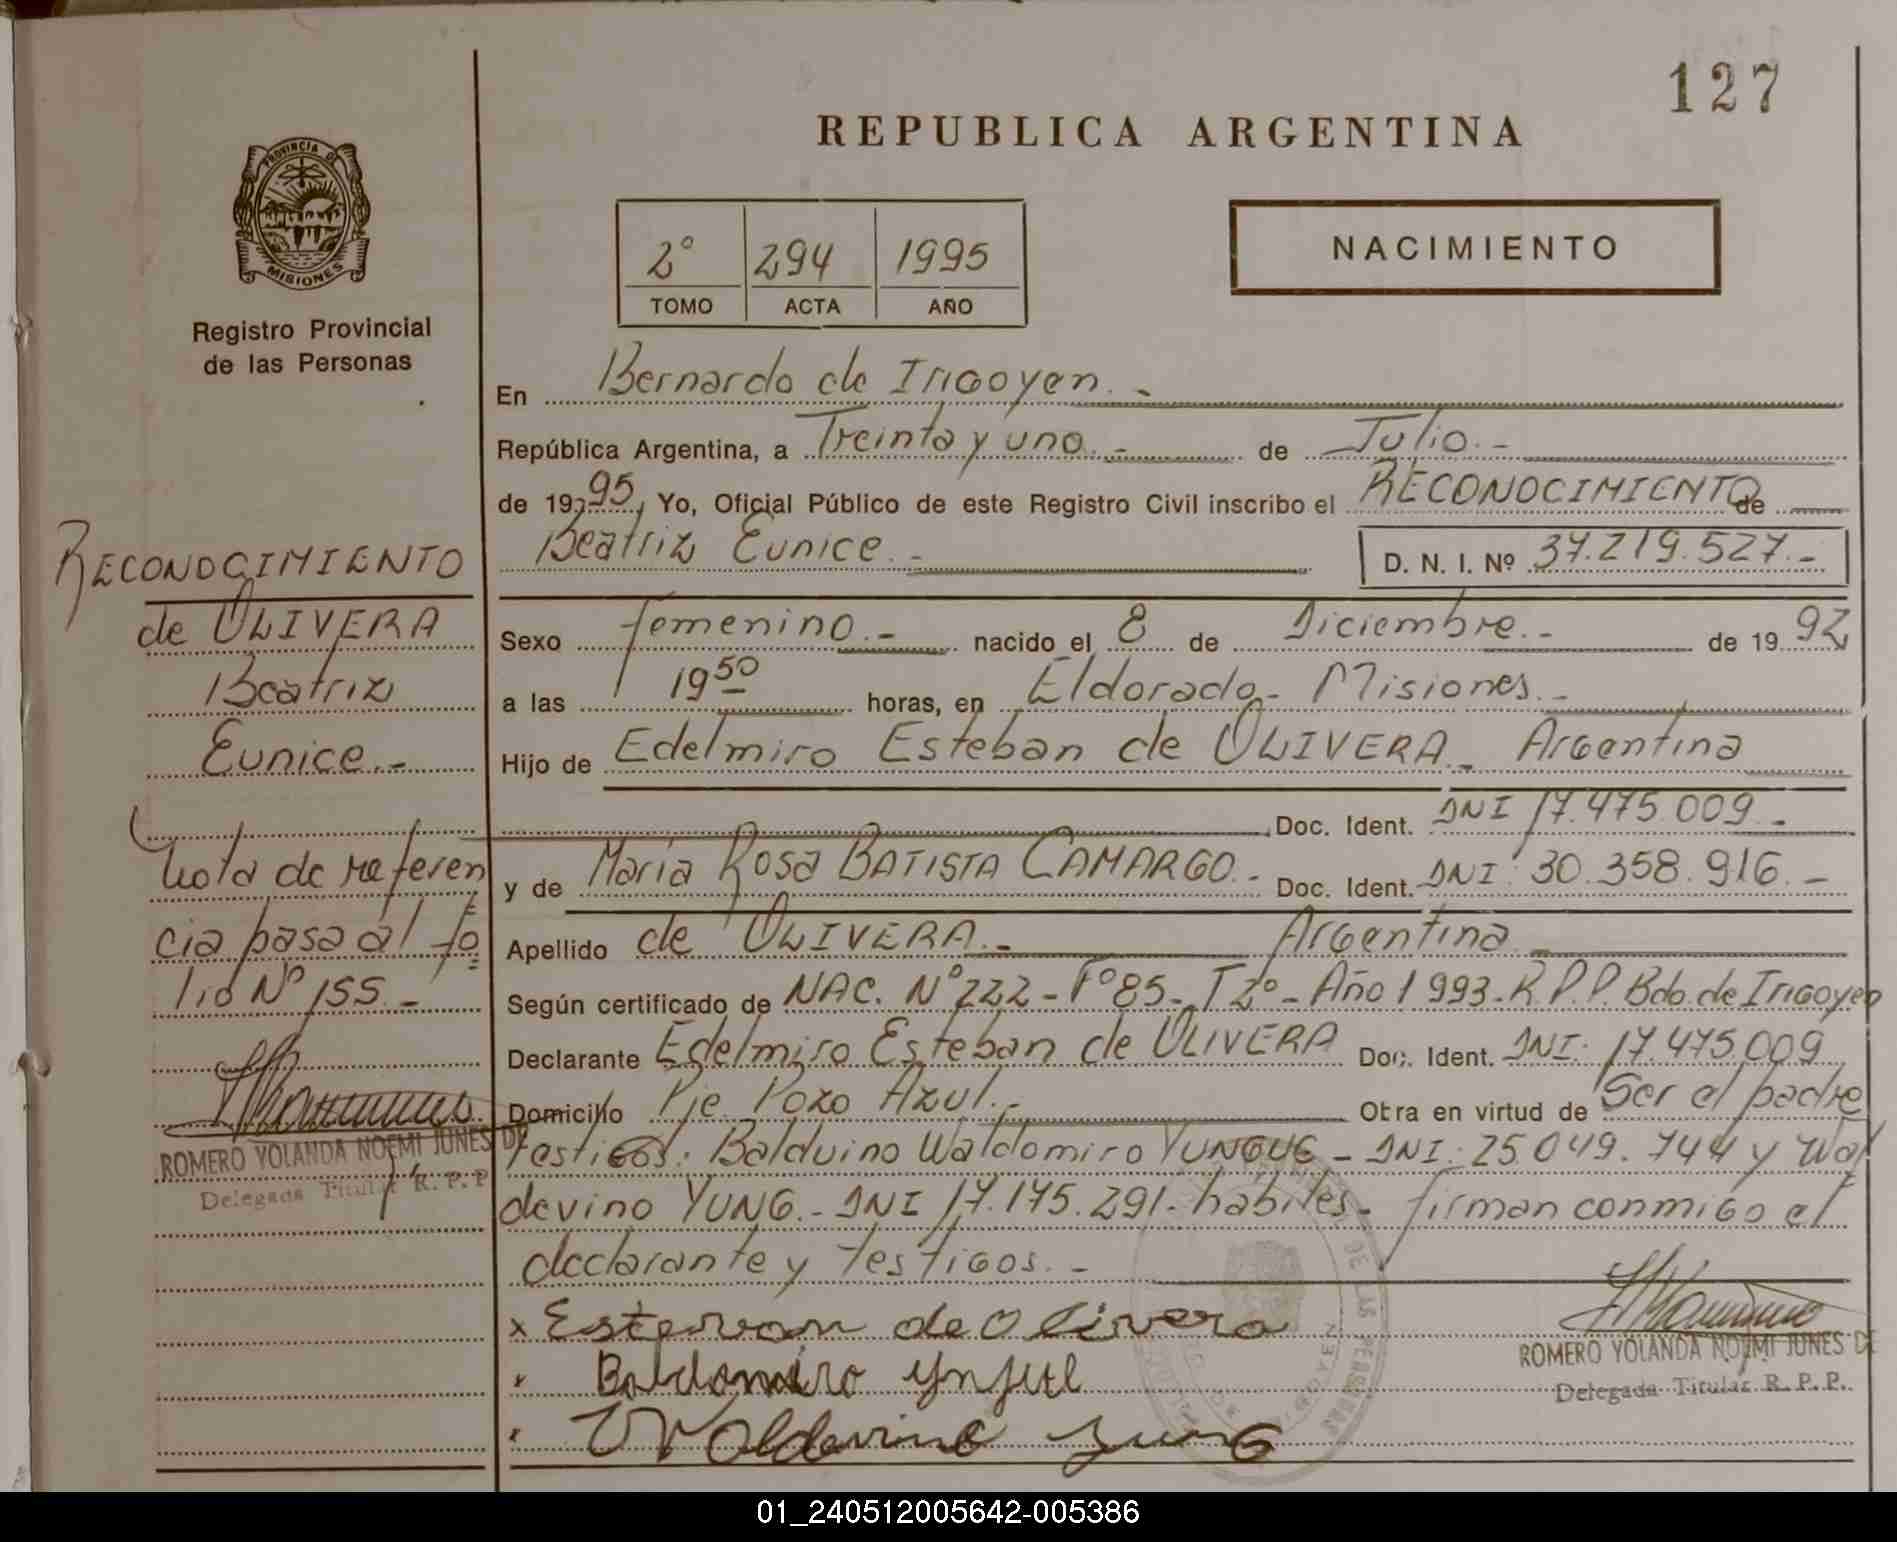 127
REPUBLICA ARGENTINA
PROVINCIA DE
MISIONES
Registro Provincial
de las Personas
2º 294 1995
TOMO ACTA AÑO
NACIMIENTO
En Bernardo de Irigoyen.-
República Argentina, a Treinta y uno.- de Julio.-
de 1995, Yo, Oficial Público de este Registro Civil inscribo el RECONOCIMIENTO de
Beatriz Eunice.- D. N. I. Nº 37.219.527.-
Sexo femenino.- nacido el 8 de Diciembre.- de 1992
a las 19 50 horas, en Eldorado- Misiones.-
Hijo de Edelmiro Esteban de OLIVERA.- Argentina
Doc. Ident. DNI 17.475.009.-
y de María Rosa BATISTA CAMARGO.- Doc. Ident. DNI: 30.358.916.-
Apellido de OLIVERA.- Argentina
Según certificado de NAC. Nº 222-Fº85-T2º-Año 1993-R.P.P. Bdo. de Irigoyen
Declarante Edelmiro Esteban de OLIVERA Doc. Ident. DNI: 17.475.009
Domicilio Pje Pozo Azul.- Obra en virtud de Ser el padre
testigos: Balduino Waldomiro YUNGUE- DNI: 25.049.744 y Wal
devino YUNG.- DNI 17.175.291- habiles- firman conmigo el
declarante y testigos.-
x Estevan de Olivera
x Baldomiro
x Valdevino Yung
ROMERO YOLANDA NOEMI JUNES DE
Delegada Titular R. P. P.
RECONOCIMIENTO
de OLIVERA
Beatriz
Eunice.-
Nota de referen
cia pasa al fo
lio Nº 155.-
ROMERO YOLANDA NOEMI JUNES DE
Delegada Titular R. P. P
01_240512005642-005386